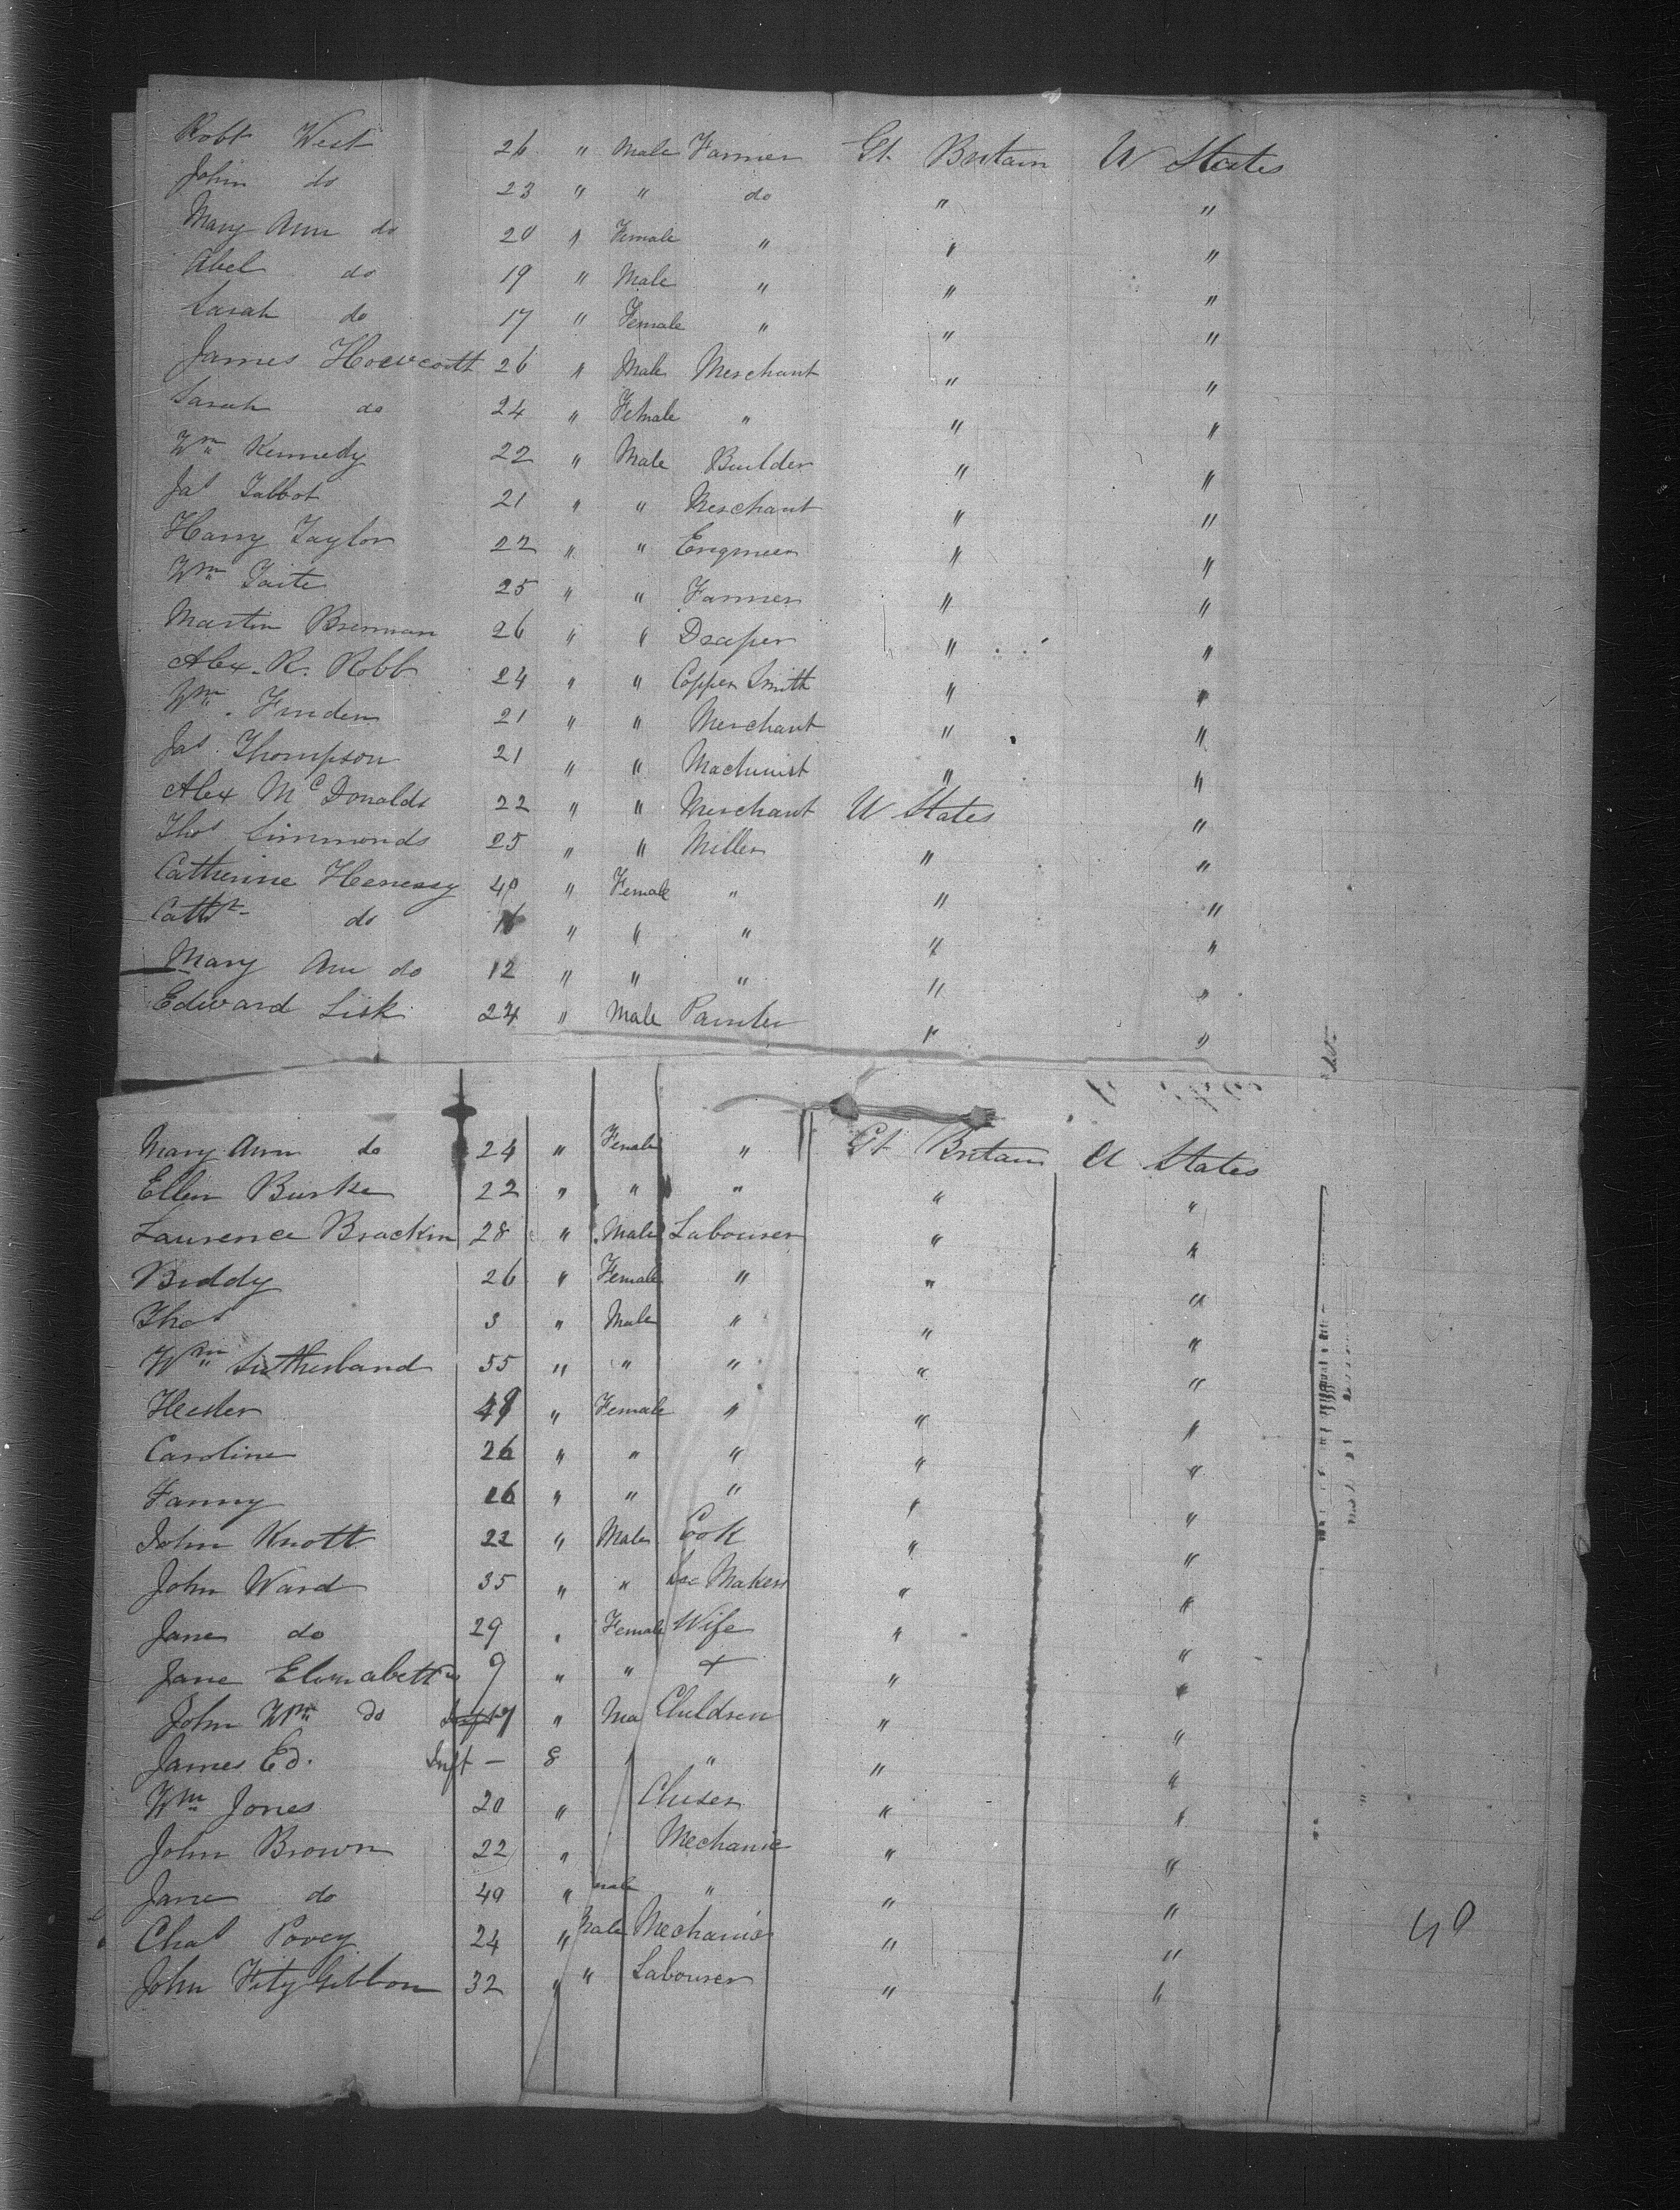 Robt West 26 " Male Farmer Gt. Britain U States
John do 23 " " do " "
Mary Ann do 20 " Female " " "
Abel do 19 " Male " " "
Sarah do 17 " Female " " "
James Howcoutt 26 " Male Merchant " "
Sarah do 24 " Female " " "
Wm Kennedy 22 " Male Builder " "
Jas Talbot 21 " " Merchant " "
Harry Taylor 22 " " Engineer " "
Wm Taite 25 " " Farmer " "
Martin Brennan 26 " " Draper " "
Alex. R. Robb 24 " " Copper Smith " "
Wm. Finden 21 " " Merchant " "
Jas. Thompson 21 " " Machinist " "
Alex McDonalds 22 " " Merchant U States "
Thos Simmonds 25 " " Miller " "
Catherine Henessy 40 " Female " " "
Catht do 16 " " " " "
Mary Ann do 12 " " " " "
Edward Lisk 24 " Male Painter " "
Mary Ann do 24 " Female " Gt Britain U States
Ellen Burke 22 " " " " "
Laurence Brackin 28 " Male Labourer " "
Biddy 26 " Female " " "
Thos 3 " Male " " "
Wm Sutherland 55 " " " " "
Hester 49 " Female " " "
Caroline 26 " " " " "
Fanny 16 " " " " "
John Knott 22 " Male Cook " "
John Ward 35 " " Makers " "
Jane do 29 " Female Wife " "
Jane Elizabeth do 9 " " + " "
John Wm do Inft 7 " Ma Children " "
James Ed. Inft - 8 " " " "
Wm Jones 20 " " "
John Brown 22 " Mechanic " "
Jane do 40 " male " " "
Chas Povey 24 " Male Mechanic " "
John FitzGibbon 32 " " Labourer " "
40